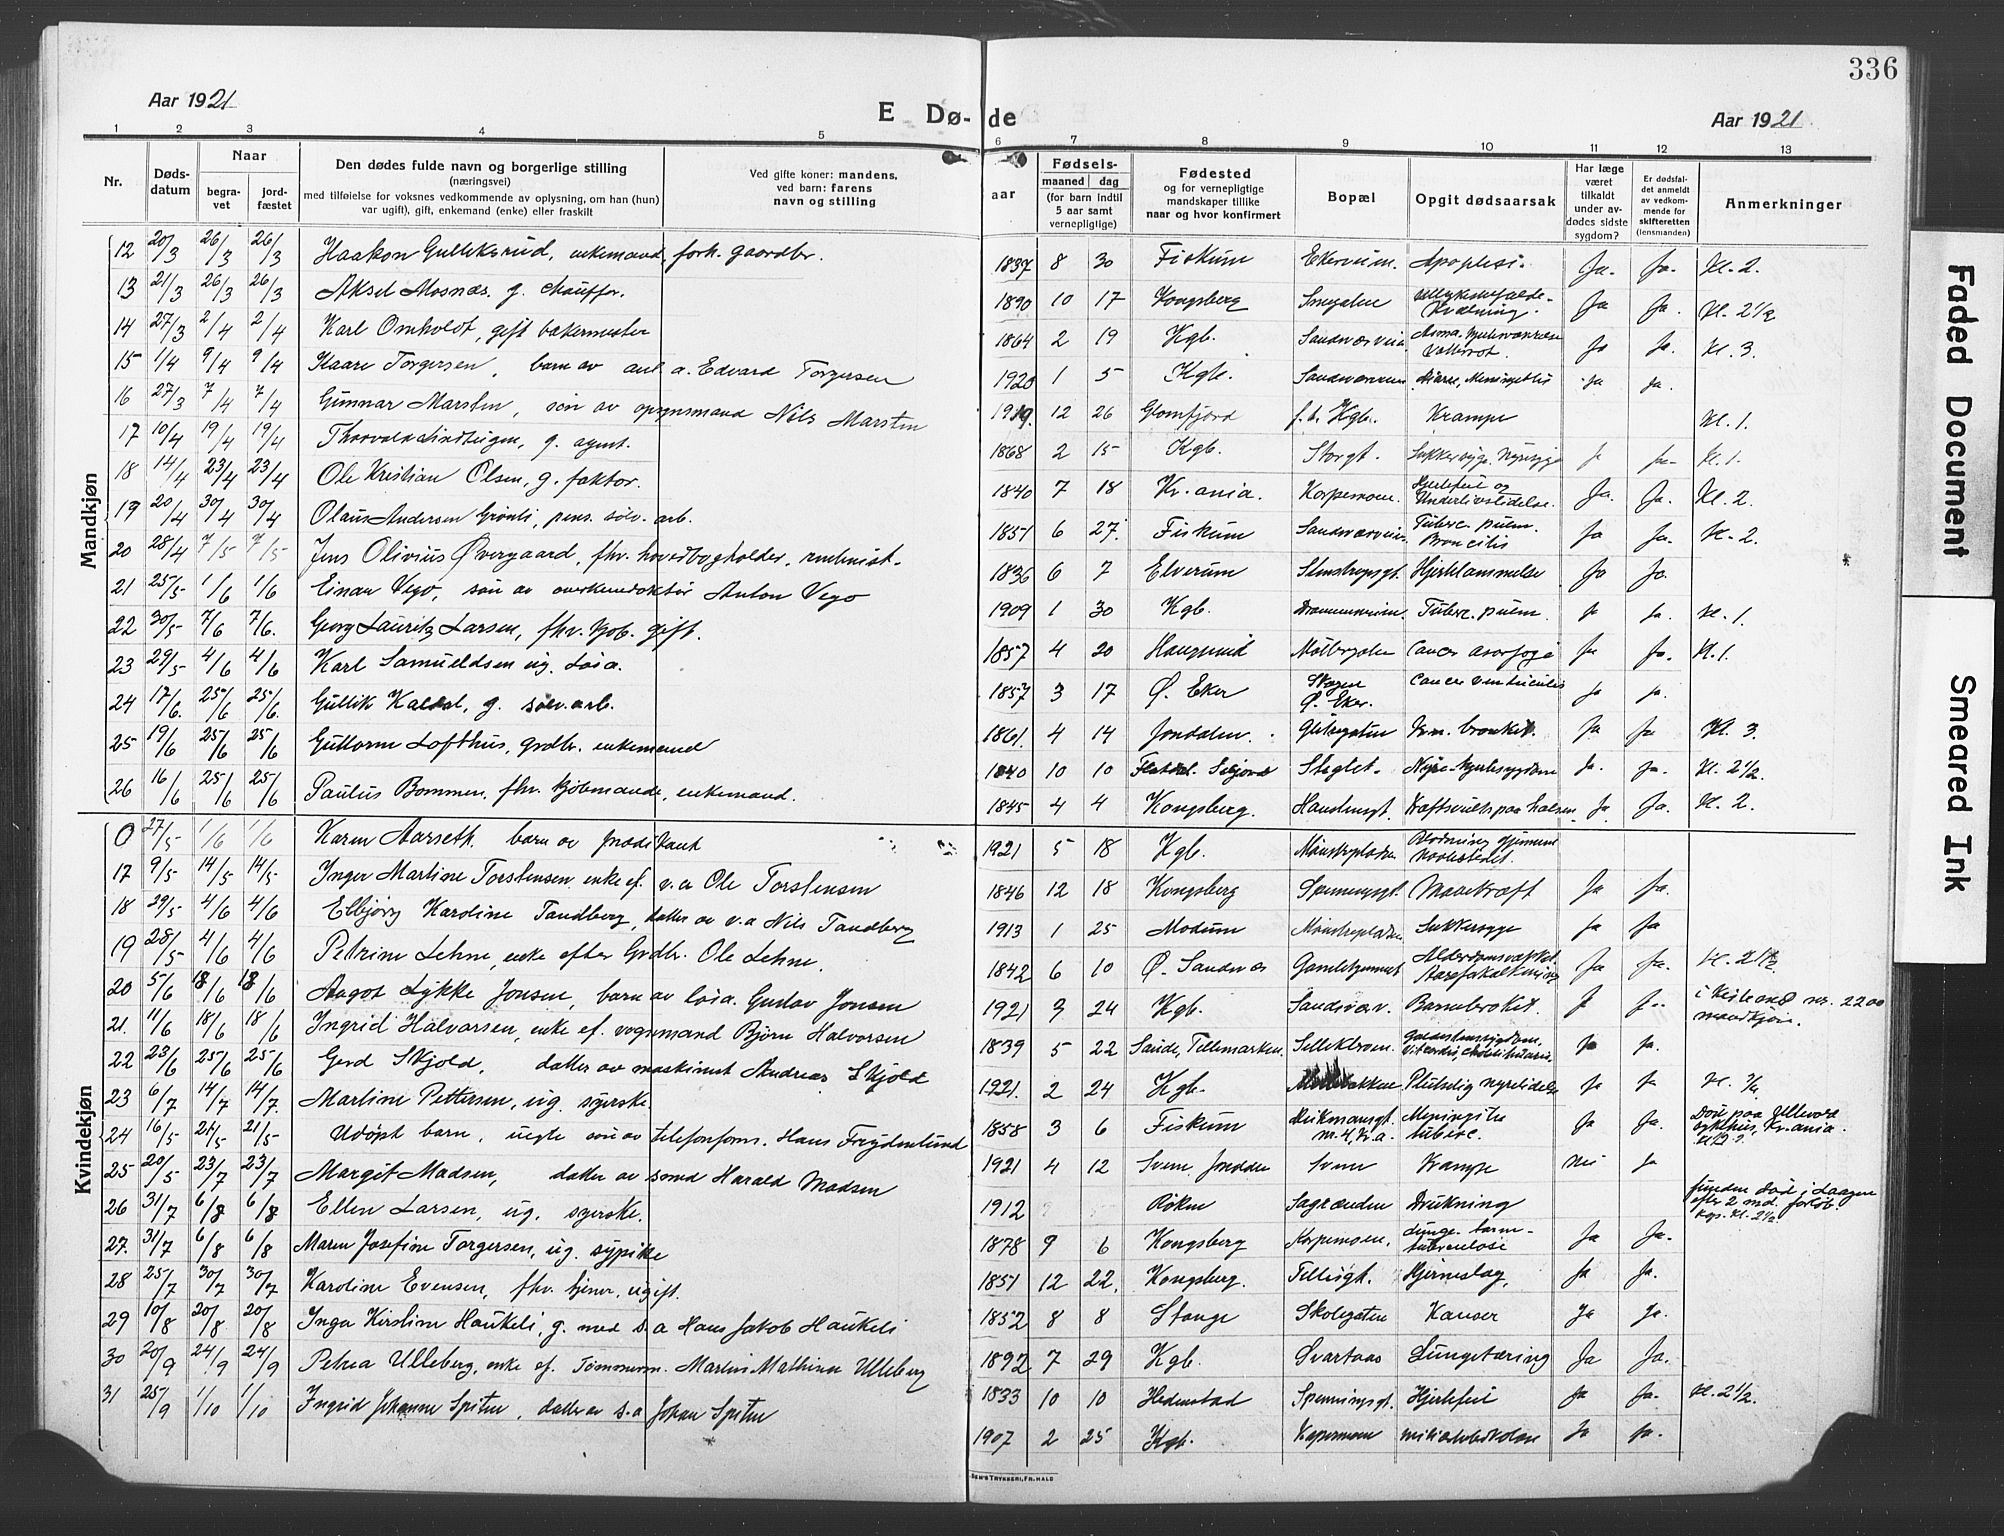 336
Aar 1921
E Dø-de
Aar 1921
1 2 3 4 5 6 7 8 9 10 11 12 13
Nr.
Døds-datum
Naar
begra-vet
jord-fæstet
Den dødes fulde navn og borgerlige stilling
(næringsvei)
med tilføielse for voksnes vedkommende av oplysning, om han (hun)
var ugift), gift, enkemand (enke) eller fraskilt
Ved gifte koner: mandens,
ved barn: farens
navn og stilling
aar
Fødsels-
maaned dag
(for barn indtil
5 aar samt
vernepligtige)
Fødested
og for vernepligtige
mandskaper tillike
naar og hvor konfirmert
Bopæl
Opgit dødsaarsak
Har læge
været
tilkaldt
under av-
dødes sidste
sygdom?
Er dødsfal-
det anmeldt
av vedkom-
mende for
skifteretten
(lensmanden)
Anmerkninger
Mandkjøn
12 20/3 26/3 26/3 Haakon Gulliksrud, enkemand, forh. gaardbr. 1837 8 30 Fiskum Ekerveien. Apoplexi. Ja. Ja. Kl. 2.
13 21/3 26/3 26/3 Aksel Mosnæs. g. chauffør. 1890 10 17 Kongsberg Smegaten Ja Ja. Kl. 2 1/2
14 27/3 2/4 2/4 Karl Omholdt, gift bakermester 1864 2 19 Kgb. Sandsværveien Ja Ja. Kl. 3.
15 1/4 9/4 9/4 Kaare Torgersen, barn av anl. a. Edvard Torgersen 1920 1 5 Kgb. Sandsværveien Diare, Meningitis Ja Ja.
16 27/3 7/4 7/4 Gunnar Marsten, søn av opsynsmand Nils Marsten 1919. 12 26 Glomfjord f.t. Kgb. Krampe Kl. 1.
17 10/4 19/4 19/4 Thorvald Lindteigen, g. agent. 1868 2 15 Kgb. Storgt. Sukkersyge. Nyresyge Ja Ja Kl. 1.
18 14/4 23/4 23/4 Ole Kristian Olsen, g. faktor. 1840 7 18 Kr.ania. Korpemoen. Hjertefeil og Underlivslidelse. Ja. Ja. Kl. 2.
19 20/4 30/4 30/4 Olaus Andersen Grønli, pens. sølv. arb. 1851 6 27. Fiskum Sandsværveien Tuberc. pulm. Broncitis Ja Ja. Kl. 2.
20 28/4 7/5 7/5 Jens Olivius Øvergaard, fhv. hovedbogholder, enkemand. 1836 6 7 Elverum Stenstrupsgt. Hjertelammelse Ja Ja.
21 25/5 1/6 1/6 Einar Vego, søn av overkonduktør Anton Vego 1909 1 30 Kgb. Drammensveien. Tuberc. pulm. Ja Ja. Kl. 1.
22 30/5 7/6 7/6. Georg Lauritz Larsen, fhv. kjøb. gift. 1857 4 20 Haugesund Møllergaten Cancer Ja Ja. Kl. 1.
23 29/5 4/6 4/6 Karl Samueldsen ug. løsa. 1857 3 17 Ø. Eker Skogen Ø. Eker. Cancer ventriculis Ja Ja.
24 17/6. 25/6 25/6. Gullik Kaldal, g. sølv.arb. 1861. 4 14 Jondalen. Glitregaten Krn. bronkit. Ja Ja Kl. 3.
25 19/6 25/6 25/6 Guttorm Lofthus, grdbr. enkemand 1840 10 10 Flatdal. Seljord Steglet. Nyre-hjertesygdom Ja. Ja. Kl. 2 1/2.
26 16/6 25/6 25/6 Paulus Bommen, fhv. kjøbmand, enkemand. 1845 4 4 Kongsberg. Hansensgt. Kræftsvulst paa halsen Ja. Ja. Kl. 2.
Kvindekjøn
0 27/5 1/6 1/6 Karen Aarseth. barn av prædikant 1921 5 18 Kgb. Mønstrepladsen Blødning gjennem navlestedet.
17 9/5 14/5 14/5 Inger Martine Torstensen enke ef. v.a Ole Torstensen 1846 12 18 Kongsberg Spenningsgt. Mavekræft Ja Ja.
18 29/5 4/6 4/6 Ellbjørg Karoline Tandberg, datter av v.a Nils Tandberg 1913 1 25 Modum Mønstrepladsen Sukkersyge Ja Ja
19 28/5 4/6 4/6 Petrine Lehne, enke efter Grdbr. Ole Lehne. 1842 6 10 Ø. Sandsvær Gamlehjemmet Alderdomssvækket. Aareforkalkning Ja Ja. Kl. 2 1/2
20 5/6 18/6 18/6 Aagot Lykke Jonsen, barn av løsa. Gustav Jonsen 1921 3 24 Kgb. Sandsvær v. Barnebroket. Ja Ja. i kiste med nr. 22 00 mandkjøn.
21. 11/6 18/6 18/6 Ingrid Halvorsen, enke ef. vognmand Bjørn Halvorsen 1839 5 22 Saude, Tellemarken Sellikbroen. Galdestenssygdom, Ja Ja.
22 23/6 25/6 25/6 Gerd Skjold, datter av maskinist Andreas Skjold 1921. 2 24 Kgb. Pludselig nyrelidelse Ja Ja Kl.
23 6/7 14/7 14/7. Martine Pettersen, ug. syerske. 1858 3 6 Fiskum Heikmansgt. nr. 4, Kr.a. Meningitis tuberc. Ja Ja. Død paa Ullevold sykehus, Kr.ania.
24 16/5 21/5 21/5 Udøpt barn, uegte søn av telefonform. Hans Frydenlund 1921 4 12 Svene Jondalen Svene Krampe Nei Ja
25 20/5 23/7 23/7 Margit Madsen, datter av smed Harald Madsen 1912 Røken Sagrenden Drukning funden død i Laagen efter 2 md. forløb. Kl. 2 1/2
26 31/7 6/8 6/8 Ellen Larsen, ug. syerske. 1878 9 6 Kongsberg Korpemoen. Lunge- tarm- tuberculose Ja Ja.
27. 31/7 6/8 6/8 Maren Josefine Torgersen, ug. sypike 1851 12 22. Kongsberg. Tellesgt. Hjerneslag, Ja Ja.
28 25/7 30/7 30/7 Karoline Evensen, fhv. tjener, ugift. 1852 8 8 Stange Skolegaten Kanser Ja Ja.
29 10/8 20/8 20/8 Inga Kirstine Haukeli, g. med s.a Hans Jakob Haukeli 1892 7 29 Kgb. Svartaas Lungetæring Ja Ja.
30 20/9 24/9 24/9 Petrea Ulleberg, enke ef. Tømmerm. Martin Mathisen Ulleberg 1833 10 10 Hedenstad Spenningsgt. Hjertefeil Ja Ja. Kl. 2 1/2.
31 25/9 1/10 1/10 Ingrid Johanne Spiten, datter av s.a Johan Spiten 1907 2 25 Kgb. Korpemoen miliærtuberkulose Ja Ja.
SEN'S TRYKKERI, FR.HALD
Faded Document
Smeared Ink